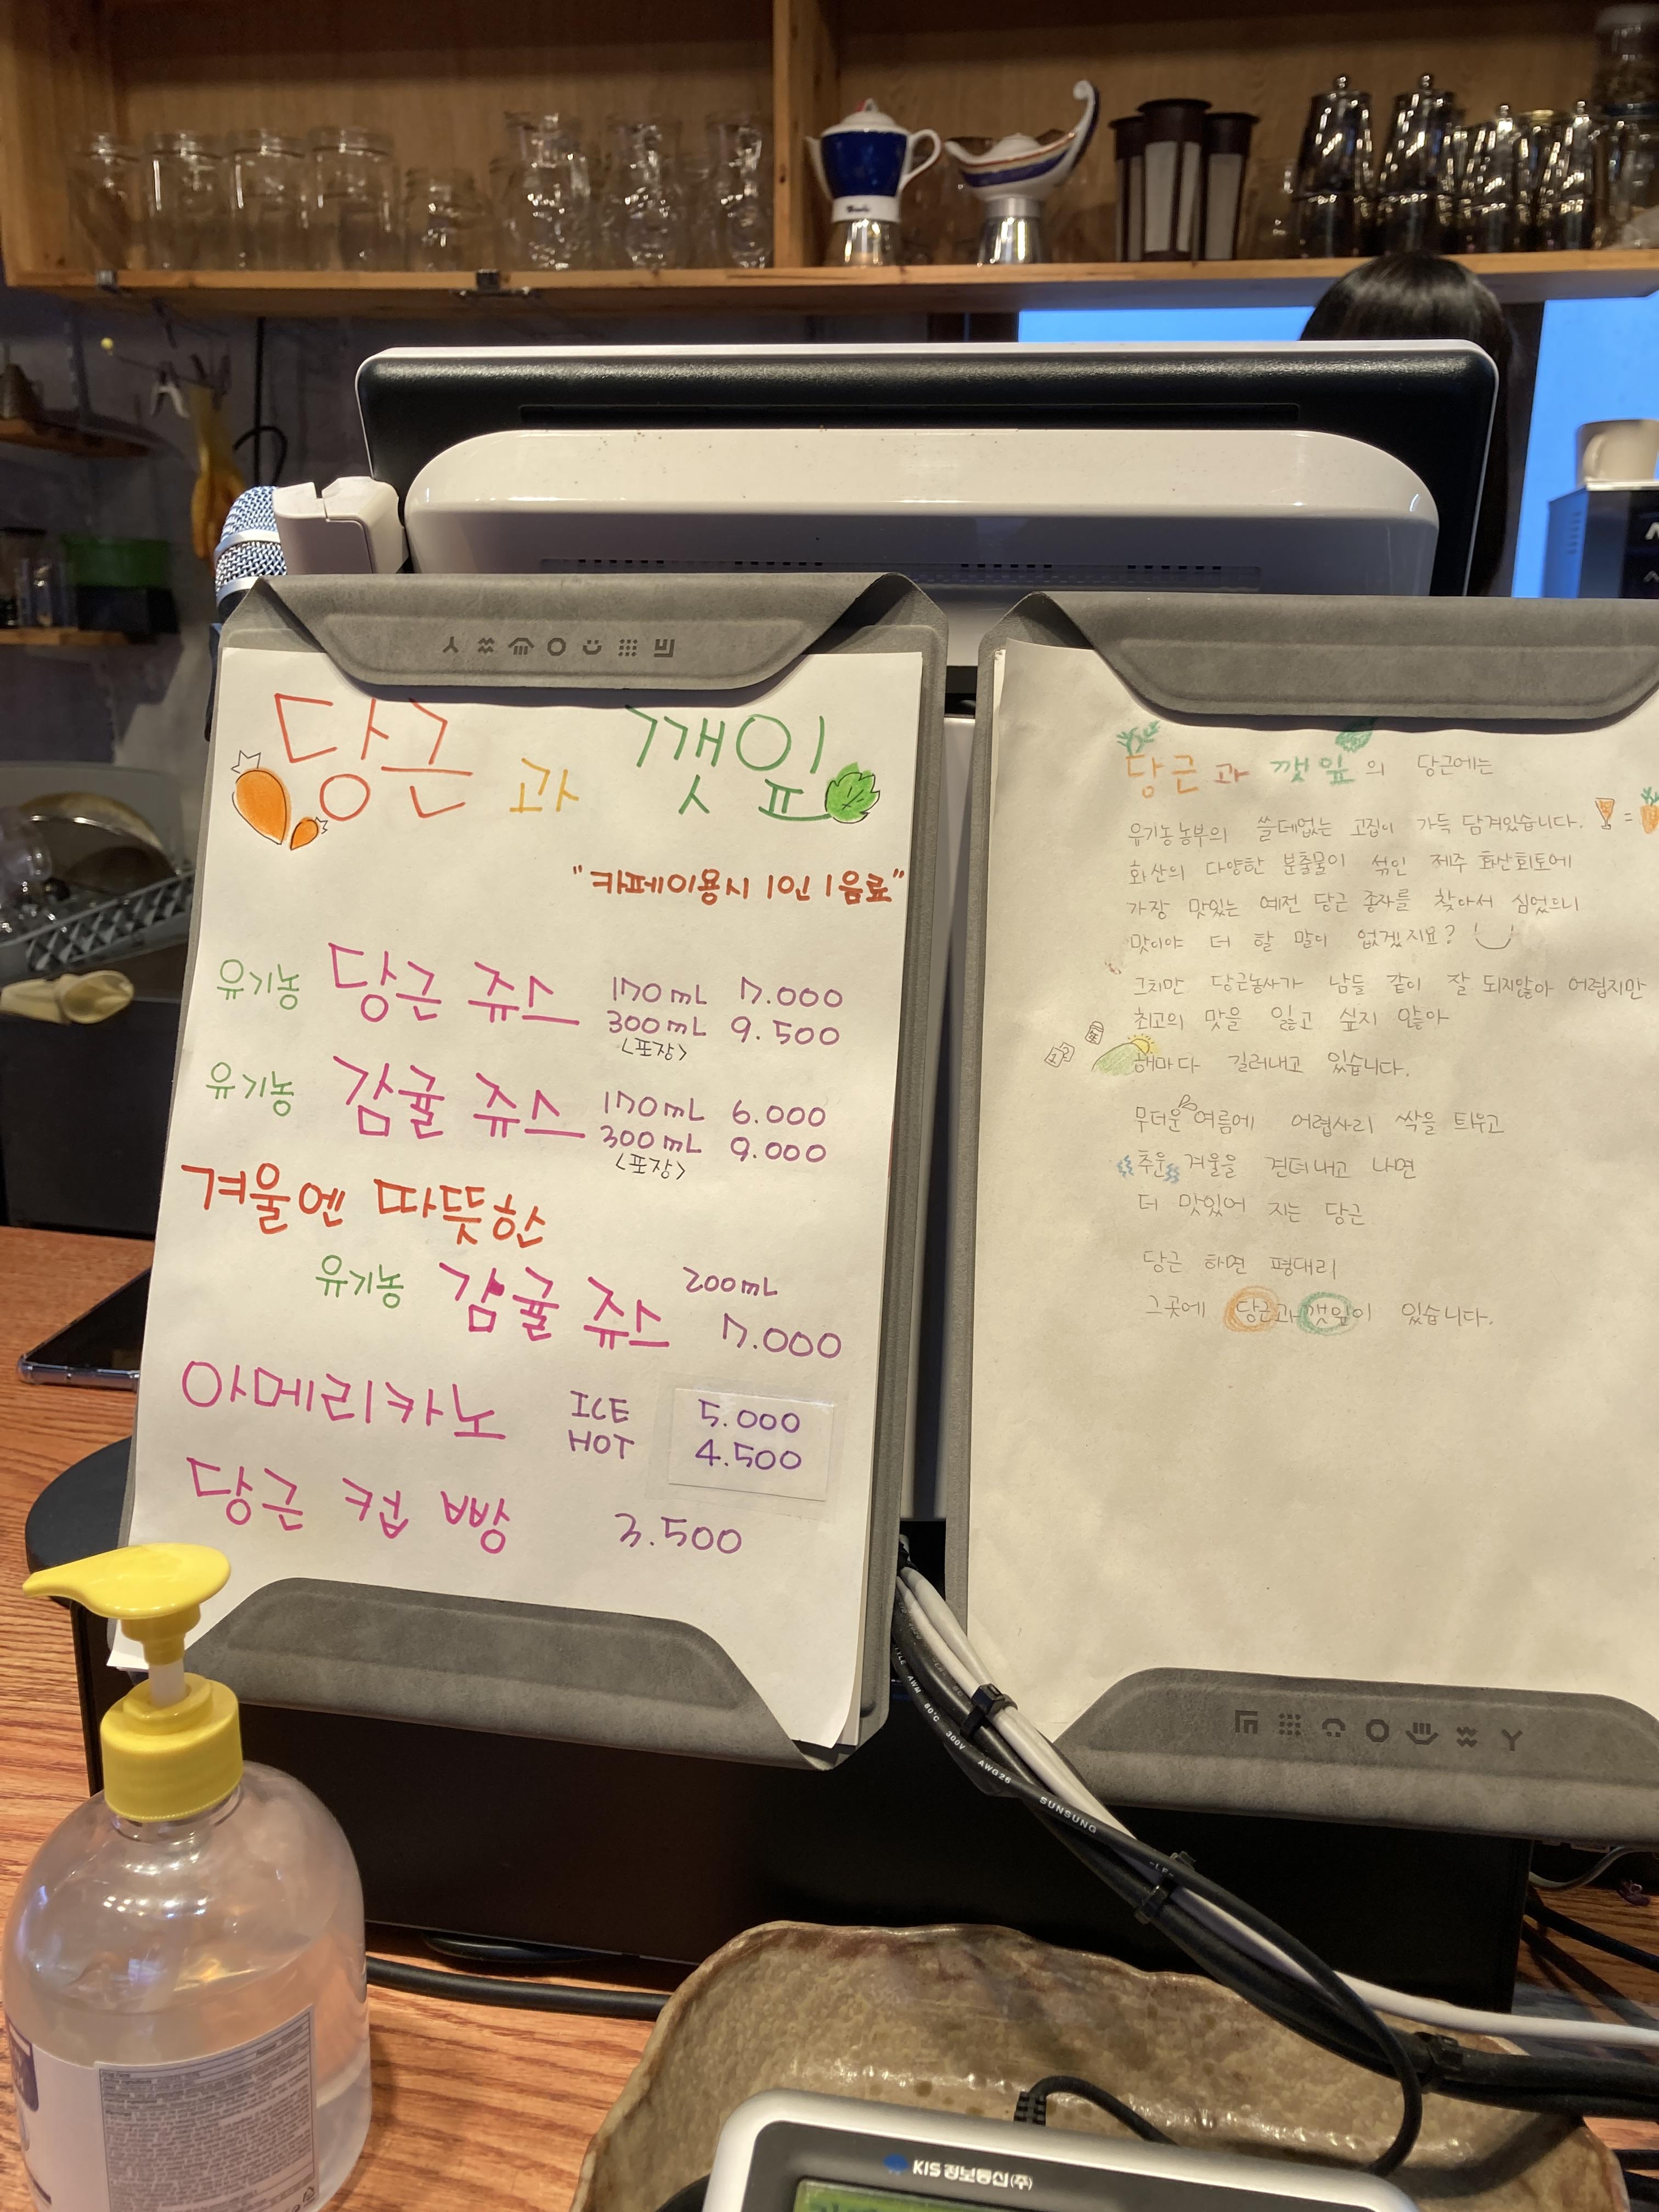 당근과 깻잎
"카페이용시 1인 1음료"
유기농 당근 쥬스 170mL 7.000
300mL 9.500
<포장>
유기농 감귤 쥬스 170mL 6.000
300mL 9.000
<포장>
겨울엔 따뜻한
유기농 감귤 쥬스 200mL 7.000
아메리카노 ICE 5.000
HOT 4.500
당근 컵 빵 3.500
당근과 깻잎의 당근에는
유기농농부의 쓸데없는 고집이 가득 담겨있습니다. =
화산의 다양한 분출물이 섞인 제주 화산회토에
가장 맛있는 예전 당근 종자를 찾아서 심었으니
맛이야 더 할 말이 없겠지요?
그치만 당근농사가 남들 같이 잘 되지않아 어렵지만
최고의 맛을 잃고 싶지 않아
해마다 길러내고 있습니다.
무더운 여름에 어렵사리 싹을 틔우고
추운 겨울을 견뎌내고 나면
더 맛있어 지는 당근
당근 하면 평대리
그곳에 당근과 깻잎이 있습니다.
80°C 300V AWG26
SUNSUNG
KIS 정보통신(주)